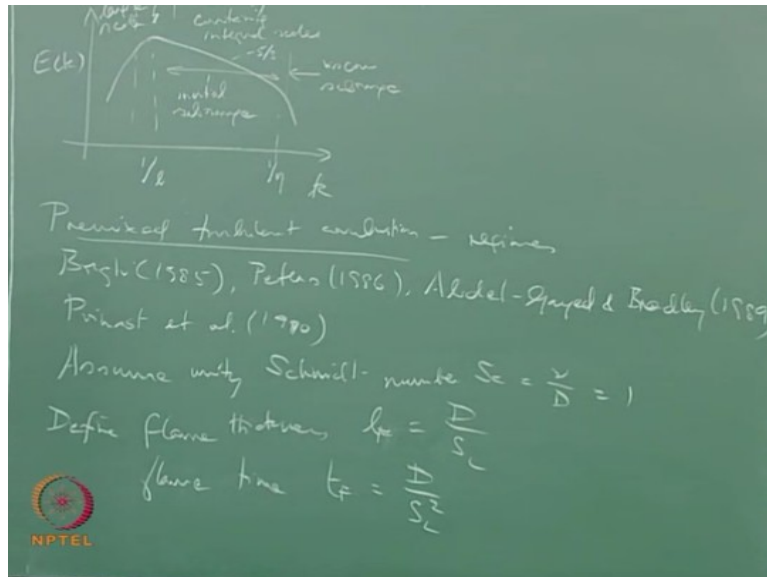 large
scales
containing
integral scales
E(k)
-5/3
inertial
subrange
viscous
subrange
1/l
1/η
k
Premixed turbulent combustion - regimes
Borghi (1985), Peters (1986), Abdel-Gayed & Bradley (1989
Poinsot et al. (1990)
Assume unity Schmidt number Sc = ν/D = 1
Define flame thickness l_F = D/S_L
flame time t_F = D/S_L^2
NPTEL